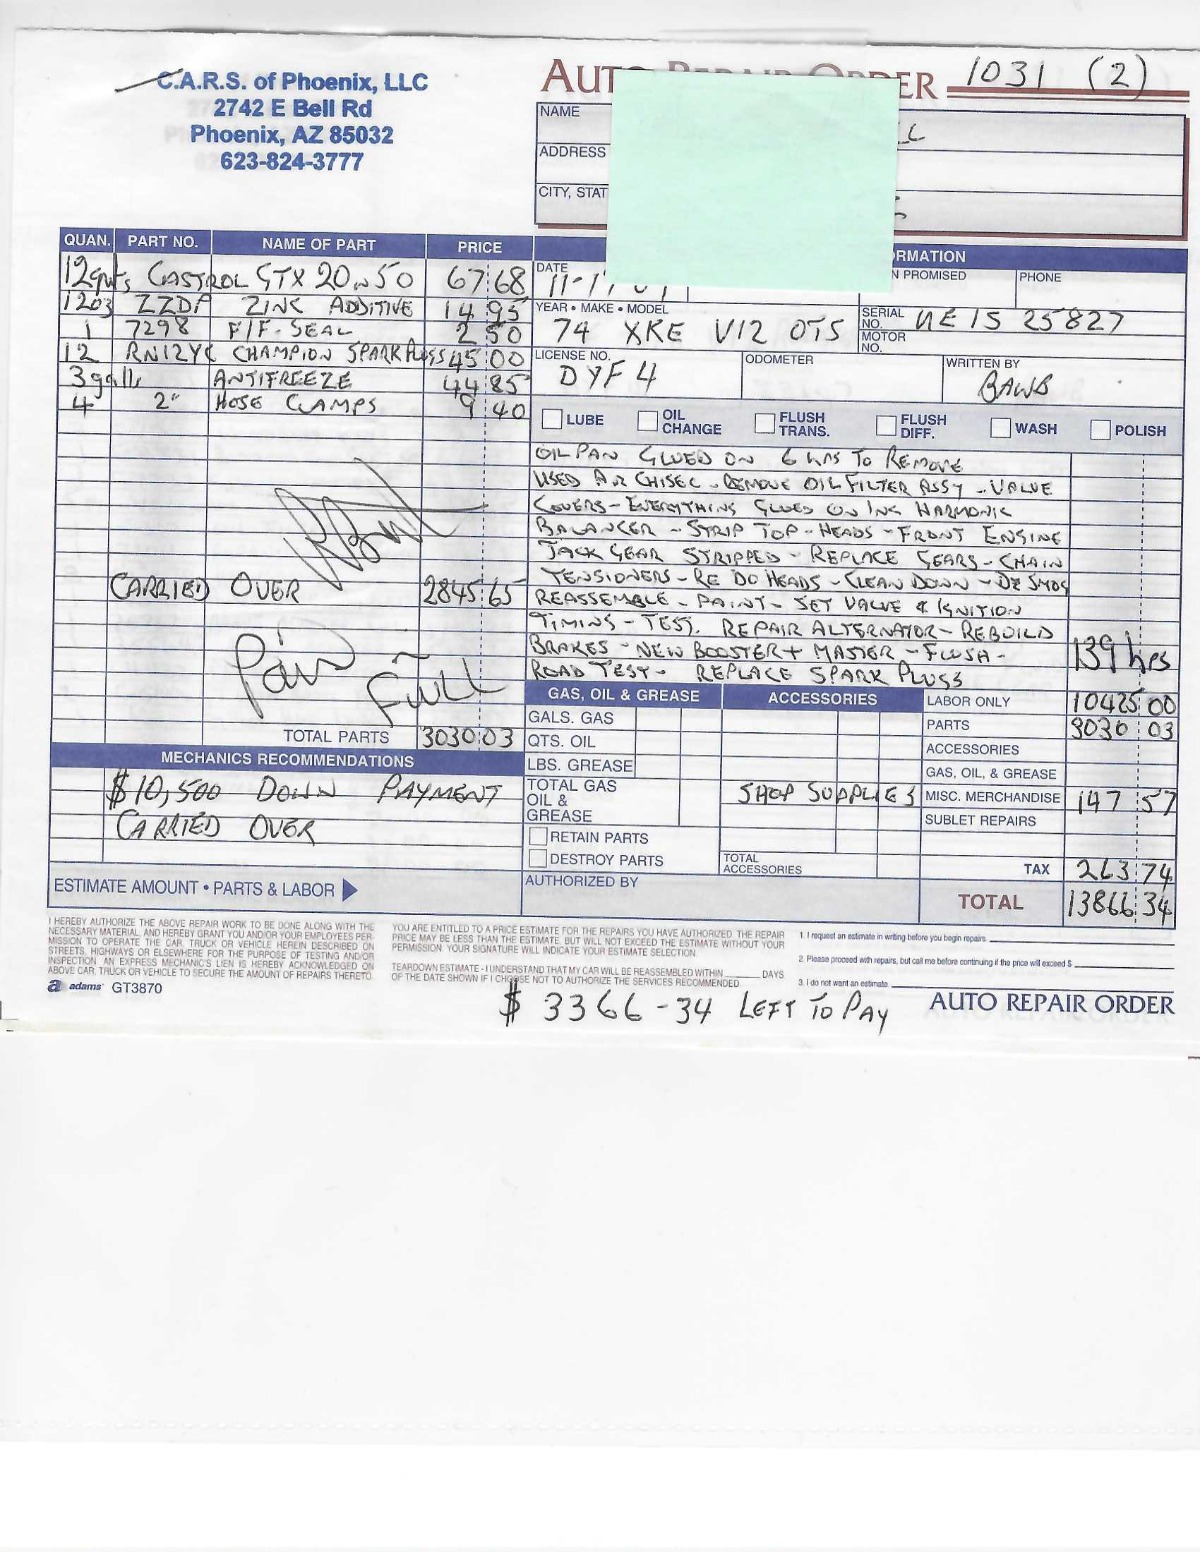 C.A.R.S. of Phoenix, LLC
2742 E Bell Rd
Phoenix, AZ 85032
623-824-3777
AUTO REPAIR ORDER 1031 (2)
NAME
ADDRESS
CITY, STAT
QUAN. PART NO. NAME OF PART PRICE
12qts CASTROL GTX 20W50 67 68
12oz ZZDP ZINC ADDITIVE 14 95
1 7298 F/F-SEAL 2 50
12 RN12YC CHAMPION SPARK PLUGS 45 00
3 galls ANTIFREEZE 44 85
4 2" HOSE CLAMPS 9 40
CARRIED OVER 2845 65
Paid Full
TOTAL PARTS 3030 03
MECHANICS RECOMMENDATIONS
$10,500 DOWN PAYMENT
CARRIED OVER
ESTIMATE AMOUNT • PARTS & LABOR
RMATION
DATE
N PROMISED
PHONE
YEAR • MAKE • MODEL
74 XKE V12 OTS
SERIAL NO. UE1S 25827
MOTOR NO.
LICENSE NO.
DYF 4
ODOMETER
WRITTEN BY
LUBE OIL CHANGE FLUSH TRANS. FLUSH DIFF. WASH POLISH
OIL PAN GLUED ON 6 hrs TO REMOVE
USED AIR CHISEL - REMOVE OIL FILTER ASSY - VALVE
COVERS - EVERYTHING GLUED ON INC HARMONIC
BALANCER - STRIP TOP - HEADS - FRONT ENGINE
JACK GEAR STRIPPED - REPLACE GEARS - CHAIN
TENSIONERS - RE DO HEADS - CLEAN DOWN -
REASSEMBLE - PAINT - SET VALVE & IGNITION
TIMING - TEST. REPAIR ALTERNATOR - REBUILD
BRAKES - NEW BOOSTER + MASTER - FLUSH - 139 hrs
ROAD TEST - REPLACE SPARK PLUGS
GAS, OIL & GREASE ACCESSORIES
GALS. GAS
QTS. OIL
LBS. GREASE
TOTAL GAS OIL & GREASE
RETAIN PARTS
DESTROY PARTS
SHOP SUPPLIES
TOTAL ACCESSORIES
AUTHORIZED BY
LABOR ONLY 10425 00
PARTS 3030 03
ACCESSORIES
GAS, OIL, & GREASE
MISC. MERCHANDISE 147 57
SUBLET REPAIRS
TAX 263 74
TOTAL 13866 34
I HEREBY AUTHORIZE THE ABOVE REPAIR WORK TO BE DONE ALONG WITH THE
NECESSARY MATERIAL, AND HEREBY GRANT YOU AND/OR YOUR EMPLOYEES PER-
MISSION TO OPERATE THE CAR, TRUCK OR VEHICLE HEREIN DESCRIBED ON
STREETS, HIGHWAYS OR ELSEWHERE FOR THE PURPOSE OF TESTING AND/OR
INSPECTION. AN EXPRESS MECHANIC'S LIEN IS HEREBY ACKNOWLEDGED ON
ABOVE CAR, TRUCK OR VEHICLE TO SECURE THE AMOUNT OF REPAIRS THERETO.
adams GT3870
YOU ARE ENTITLED TO A PRICE ESTIMATE FOR THE REPAIRS YOU HAVE AUTHORIZED. THE REPAIR
PRICE MAY BE LESS THAN THE ESTIMATE, BUT WILL NOT EXCEED THE ESTIMATE WITHOUT YOUR
PERMISSION. YOUR SIGNATURE WILL INDICATE YOUR ESTIMATE SELECTION.
TEARDOWN ESTIMATE - I UNDERSTAND THAT MY CAR WILL BE REASSEMBLED WITHIN DAYS
OF THE DATE SHOWN IF I CHOOSE NOT TO AUTHORIZE THE SERVICES RECOMMENDED.
1. I request an estimate in writing before you begin repairs
2. Please proceed with repairs, but call me before continuing if the price will exceed $
3. I do not want an estimate
AUTO REPAIR ORDER
$ 3366-34 LEFT TO PAY